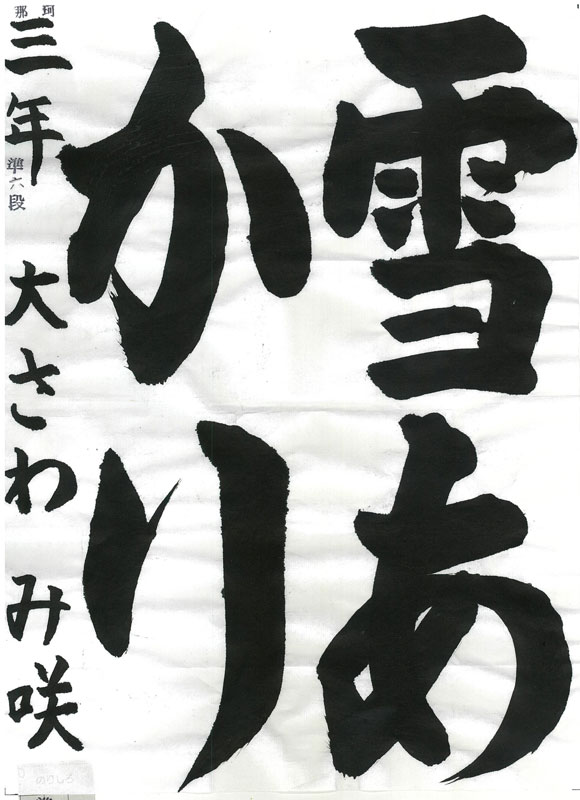 雪あ
かり
那珂
三年
準六段
大さわ み咲
のりしろ